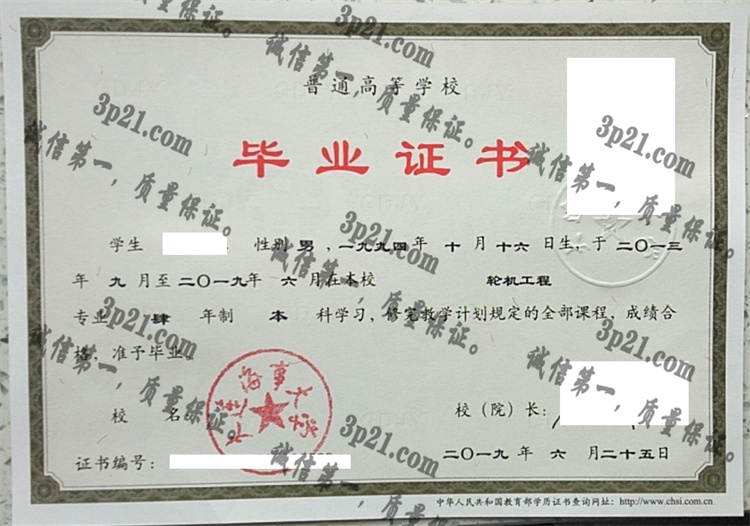 普通高等学校
毕业证书
学生 性别 男，一九九四年 十 月 十六 日生，于 二〇一三
年 九 月至 二〇一九年 六 月在本校 轮机工程
专业 肆 年制 本 科学习，修完教学计划规定的全部课程，成绩合
格，准予毕业。
大连海事大学
校 名：
校（院）长：
证书编号：
二〇一九 年 六 月 二十五 日
中华人民共和国教育部学历证书查询网址：http://www.chsi.com.cn
3p21.com
诚信第一，质量保证。
3p21.com
诚信第一，质量保证。
3p21.com
诚信第一，质量保证。
3p21.com
诚信第一，质量保证。
3p21.com
诚信第一，质量保证。
3p21.com
诚信第一，质量保证。
3p21.com
诚信第一，质量保证。